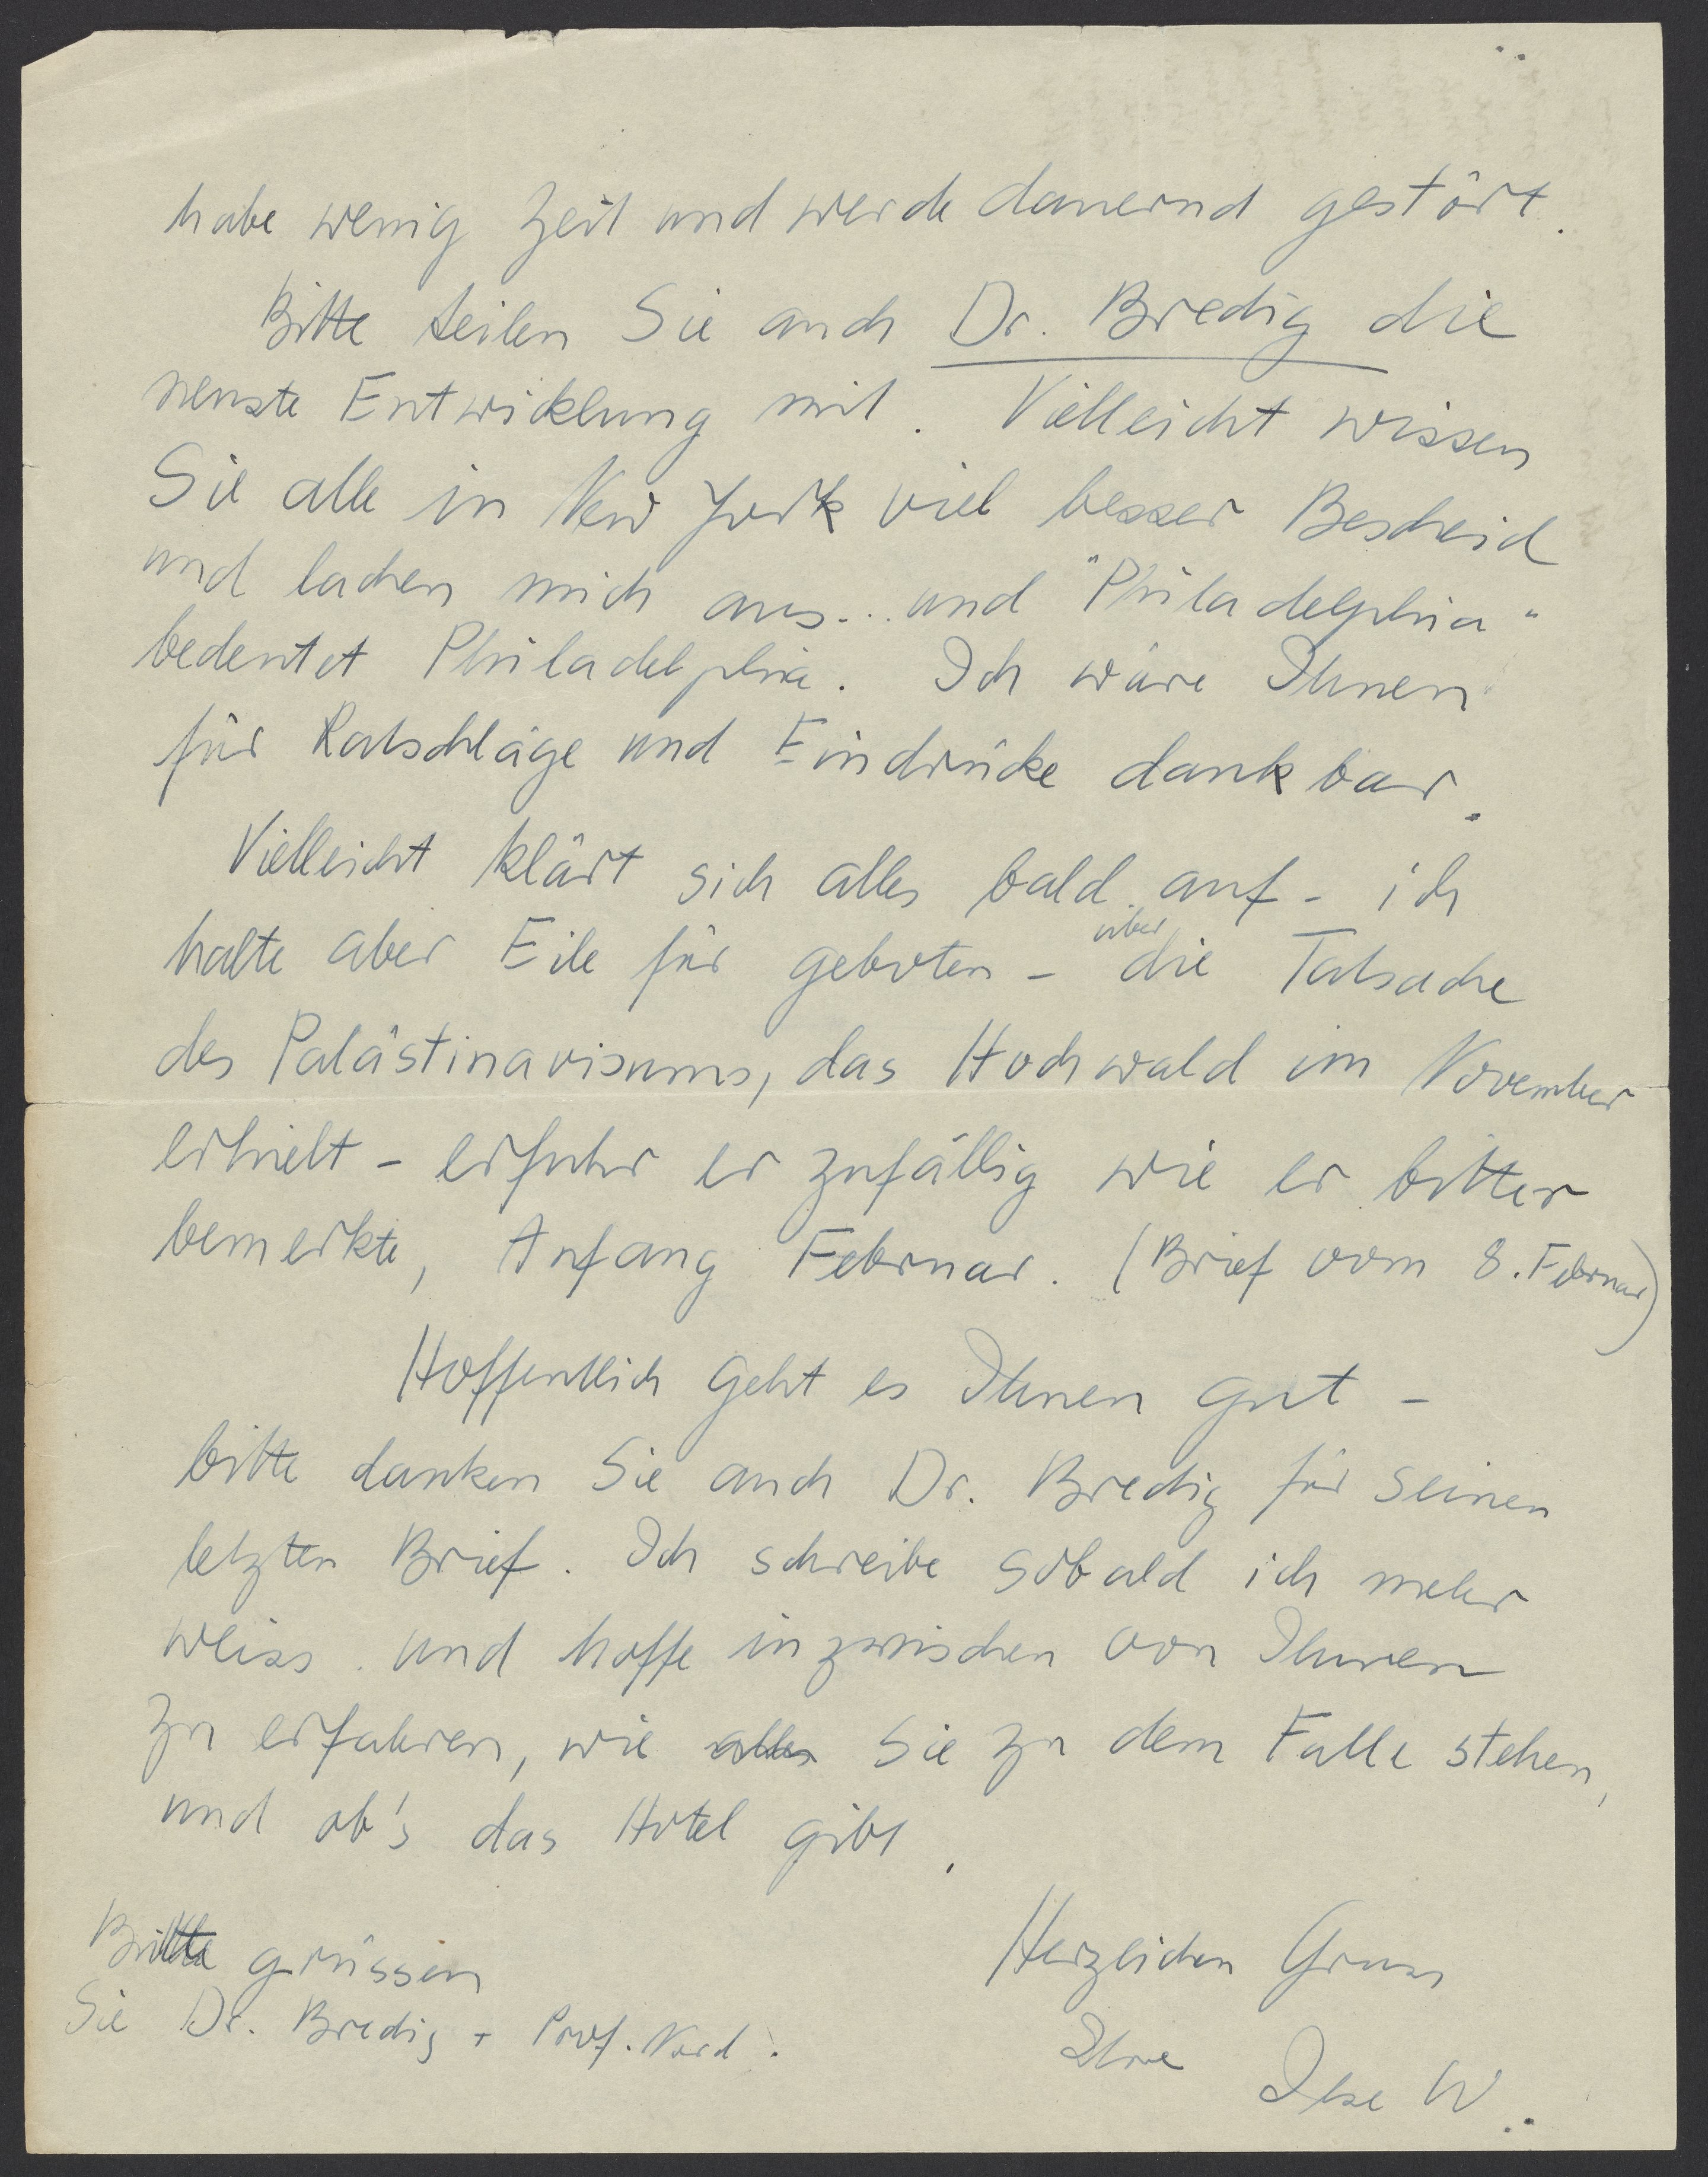 habe wenig Zeit und werde dauernd gestört.
Bitte teilen Sie auch Dr. Bredig die
neuste Entwicklung mit. Vielleicht wissen
Sie alle in New York viel besser Bescheid
und lachen mich aus... und "Philadelphia"
bedeutet Philadelphia. Ich wäre Ihnen
für Ratschläge und Eindrücke dankbar.
Vielleicht klärt sich alles bald auf - ich
halte aber Eile für geboten - über die Tatsache
des Palästinavisums, das Hochwald im November
erhielt - erfuhr er zufällig wie er bitter
bemerkte, Anfang Februar. (Brief vom 8. Februar)
Hoffentlich geht es Ihnen gut -
bitte danken Sie auch Dr. Bredig für seinen
letzten Brief. Ich schreibe sobald ich mehr
weiss. und hoffe inzwischen von Ihnen
zu erfahren, wie alles Sie zu dem Falle stehen,
und ob's das Hotel gibt.
Bitte grüssen
Sie Dr. Bredig + Prof. Nord.
Herzlichen Gruss
Ihre
Ilse W.